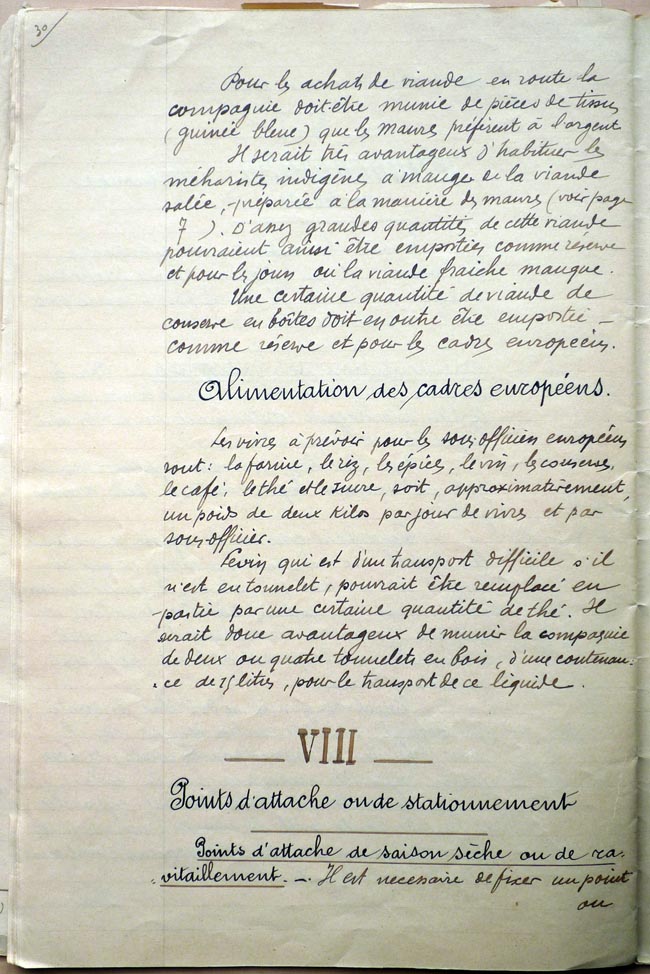 30
Pour les achats de viande en route la
compagnie doit être munie de pièces de tissus
(guinée bleue) que les Maures préfèrent à l'argent
Il serait très avantageux d'habituer les
méharistes indigènes à manger de la viande
salée, préparée à la manière des maures (voir page
7 ). D'assez grandes quantités de cette viande
pourraient ainsi être emportées comme réserve
et pour les jours où la viande fraîche manque.
Une certaine quantité de viande de
conserve en boîtes doit en outre être emportée
comme réserve et pour les cadres européens.
Alimentation des cadres européens.
Les vivres à prévoir pour les sous-officiers européens
sont: la farine, le riz, les épices, le vin, les conserves,
le café, le thé et le sucre, soit, approximativement,
un poids de deux kilos par jour de vivres et par
sous-officier.
Le vin qui est d'un transport difficile s'il
n'est en tonnelet, pourrait être remplacé en
partie par une certaine quantité de thé. Il
serait donc avantageux de munir la compagnie
de deux ou quatre tonnelets en bois, d'une contenan-
ce de 15 litres, pour le transport de ce liquide.
VIII
Points d'attache ou de stationnement
Points d'attache de saison sèche ou de ra-
vitaillement. — Il est necessaire de fixer un point
ou